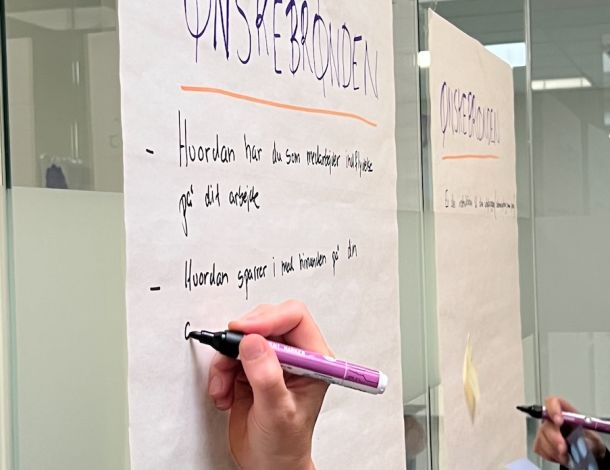 ØNSKEBRØNDEN
- Hvordan har du som medarbejder indflydelse
på dit arbejde
- Hvordan sparrer i med hinanden på
ØNSKEBRØNDEN